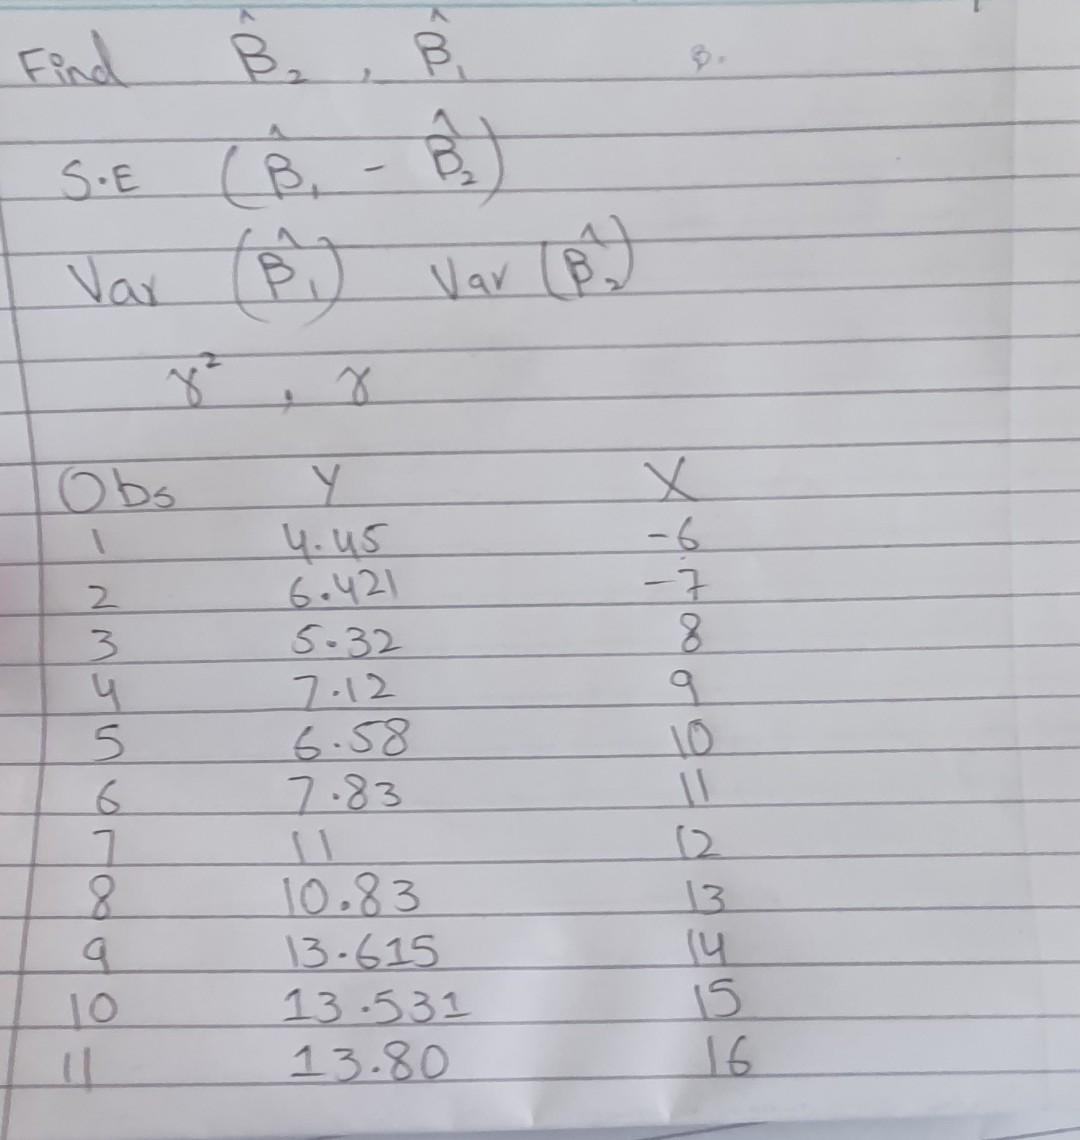 Find β̂₂ , β̂₁ β.
S.E (β̂₁ - β̂₂)
Var (β̂₁) Var (β̂₂)
r² , r
Obs Y X
1 4.45 -6
2 6.421 -7
3 5.32 8
4 7.12 9
5 6.58 10
6 7.83 11
7 11 12
8 10.83 13
9 13.615 14
10 13.531 15
11 13.80 16